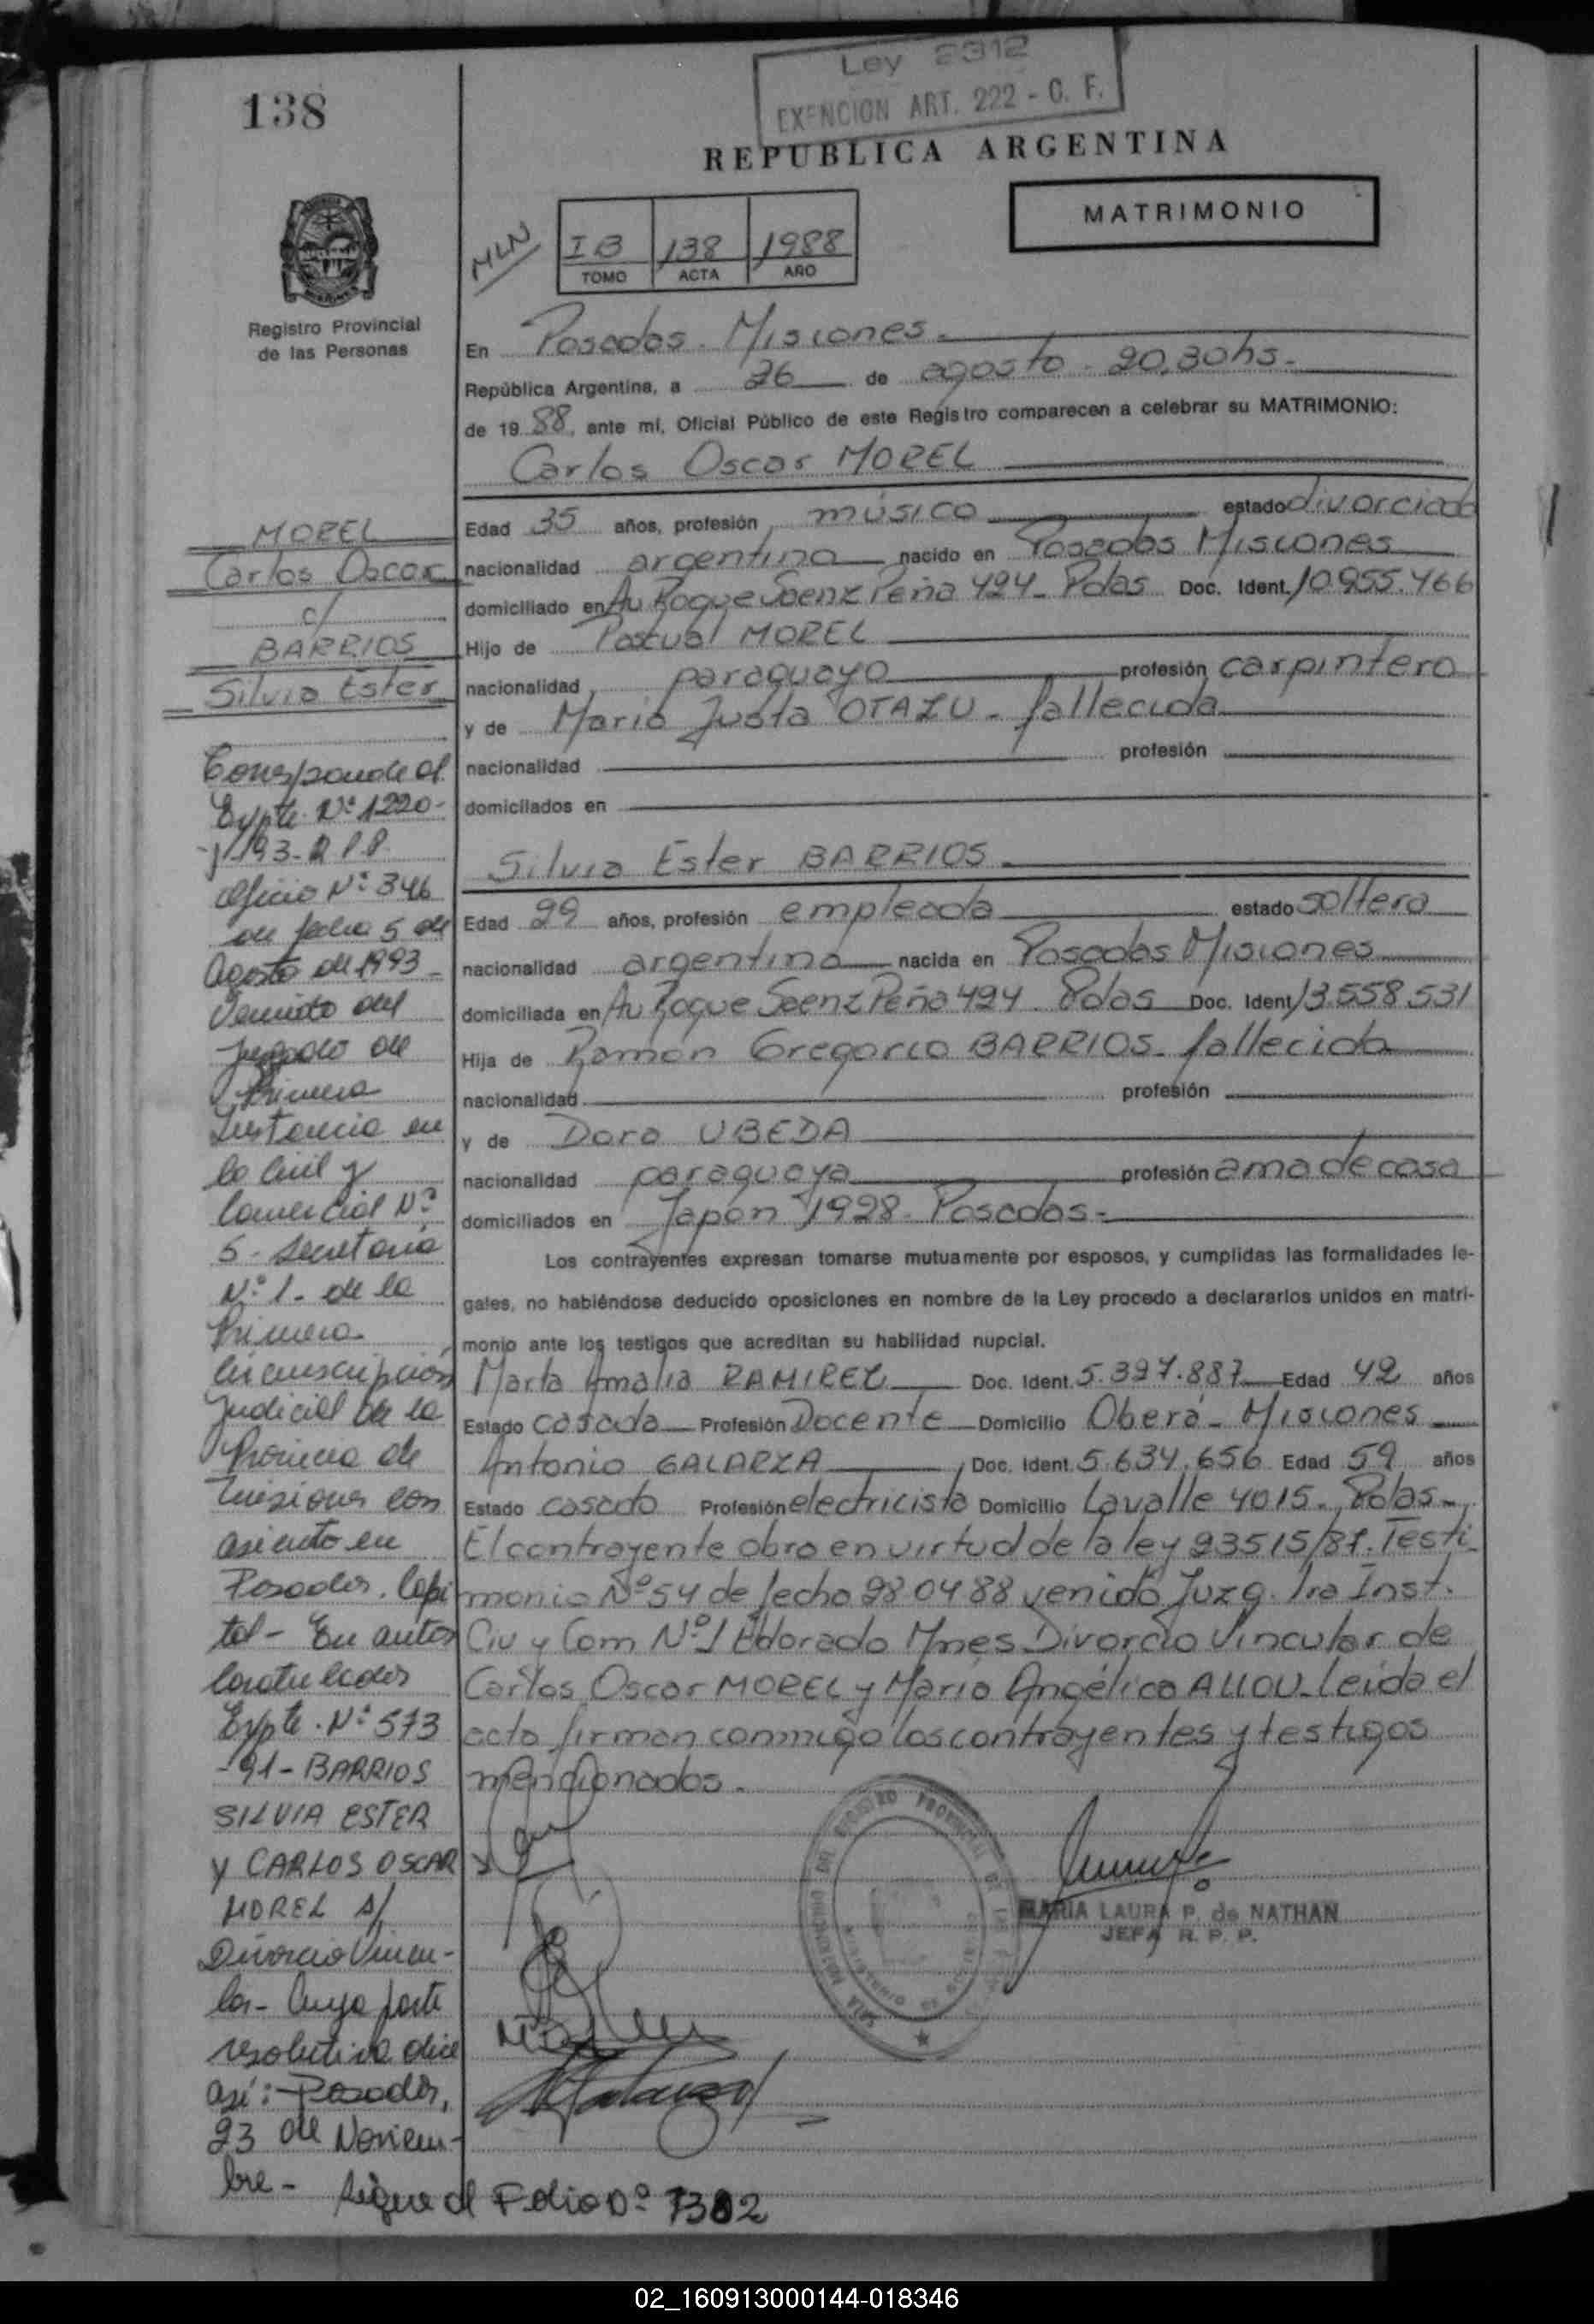 Ley 2312
EXENCION ART. 222 - C. F.
138
REPUBLICA ARGENTINA
MATRIMONIO
MLN
I B 138 1988
TOMO ACTA AÑO
Registro Provincial
de las Personas
En Posadas - Misiones.
República Argentina, a 26 de agosto - 20,30hs.
de 19 88, ante mí, Oficial Público de este Registro comparecen a celebrar su MATRIMONIO:
Carlos Oscar MOREL
Edad 35 años, profesión músico estado divorciado
nacionalidad argentina nacido en Posadas Misiones
domiciliado en Av Roque Saenz Peña 424 - Pdas Doc. Ident. 10.955.466
Hijo de Pascual MOREL
nacionalidad paraguayo profesión carpintero
y de Maria Justa OTAZU - fallecida
nacionalidad profesión
domiciliados en
Silvia Ester BARRIOS
Edad 29 años, profesión empleada estado soltera
nacionalidad argentina nacida en Posadas Misiones
domiciliada en Av Roque Saenz Peña 424 - Pdas Doc. Ident 13.558.531
Hija de Ramon Gregorio BARRIOS - fallecido
nacionalidad profesión
y de Dora UBEDA
nacionalidad paraguaya profesión ama de casa
domiciliados en Japón 1928 - Posadas -
Los contrayentes expresan tomarse mutuamente por esposos, y cumplidas las formalidades le-
gales, no habiéndose deducido oposiciones en nombre de la Ley procedo a declararlos unidos en matri-
monio ante los testigos que acreditan su habilidad nupcial.
Marta Amalia RAMIREZ Doc. Ident. 5.397.887 Edad 42 años
Estado casada Profesión Docente Domicilio Oberá - Misiones
Antonio GALARZA Doc. Ident. 5.634.656 Edad 59 años
Estado casado Profesión electricista Domicilio Lavalle 4015 - Pdas -
El contrayente obra en virtud de la ley 23515/87. Testi-
monio Nº 54 de fecha 28 04 88 venido Juzg. 1ra Inst.
Civ y Com Nº 1 Eldorado Mnes Divorcio Vincular de
Carlos Oscar MOREL y Maria Angélica ALLOU - Leida el
acta firman conmigo los contrayentes y testigos
mencionados.
MARIA LAURA P. de NATHAN
JEFA R. P. P.
MOREL
Carlos Oscar
c/
BARRIOS
Silvia Ester
Corresponde al
Expte. Nº 1220-
193-R P.P.
Oficio Nº 346
de fecha 5 de
Agosto de 1993 -
Venido del
Juzgado de
Primera
Instancia en
lo Civil y
Comercial Nº
5 - Secretaria
Nº 1 - de la
Primera
Circunscripción
Judicial de la
Provincia de
Misiones con
asiento en
Posadas. Capi
tal - En autos
Caratulados
Expte. Nº 573
-91 - BARRIOS
SILVIA ESTER
y CARLOS OSCAR
MOREL s/
Divorcio Vincu-
lar - Cuya parte
resolutiva dice
asi: Posadas,
23 de Noviem-
bre - Sigue al Folio Nº
02_160913000144-018346